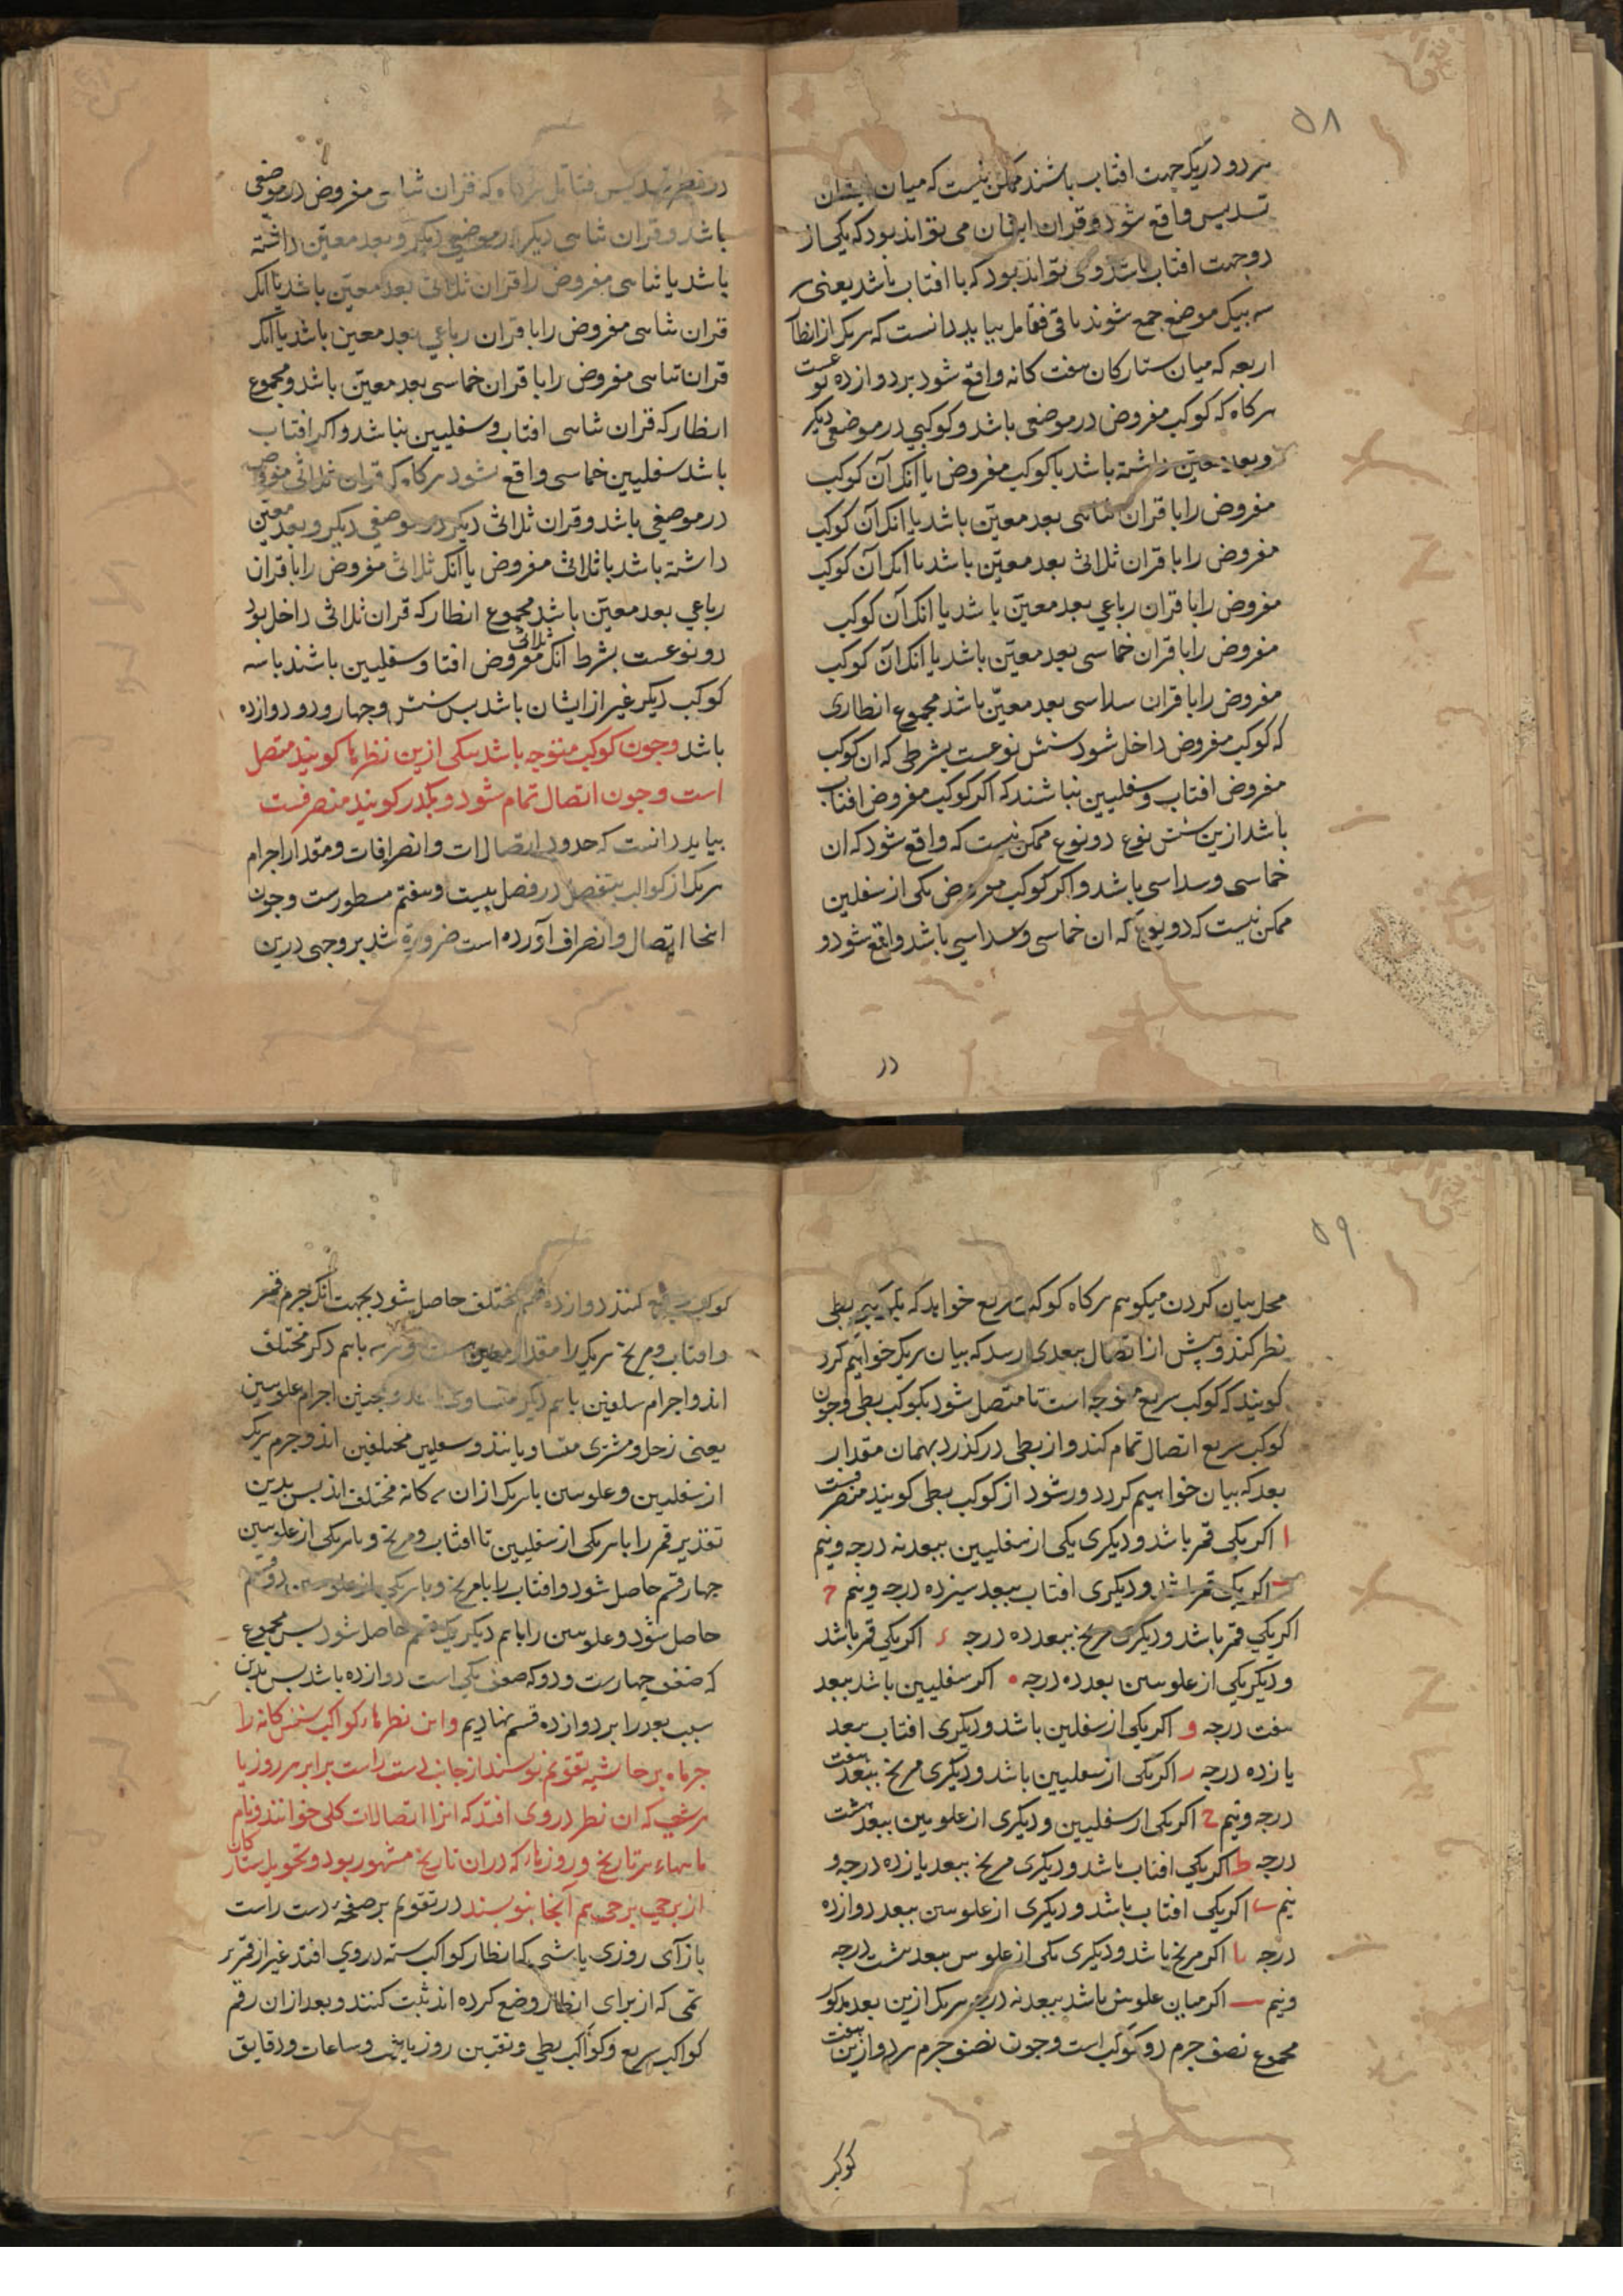 ۵۸
هر دو در یک جهت افتاب باشند ممکن نیست که میان ایشان
تسدیس واقع شود و قران ایشان می تواند بود که یکی از
دو جهت افتاب باشد و می تواند بود که با افتاب باشد یعنی هر
سه بیک موضع جمع شوند باقی فقامل بباید دانست که هر یک از انظار
اربعه که میان ستارکان هفت کانه واقع شود بر دوازده نوعست
هرکاه که کوکب مفروض در موضعی باشد و کوکبی در موضعی دیکر
و بعد معین داشته باشد با کوکب مفروض یا انک آن کوکب
مفروض را با قران ثنایی بعد معین باشد یا انک آن کوکب
مفروض را با قران ثلاثی بعد معین باشد یا انک آن کوکب
مفروض را با قران رباعی بعد معین باشد یا انک آن کوکب
مفروض را با قران خماسی بعد معین باشد یا انک آن کوکب
مفروض را با قران سداسی بعد معین باشد مجموع انظاری
که کوکب مفروض داخل شود شش نوعست بشرطی که ان کوکب
مفروض افتاب و سفلیین نباشند که اکر کوکب مفروض افتاب
باشد ازین شش نوع دو نوع ممکن نیست که واقع شود که ان
خماسی و سداسی باشد و اکر کوکب مفروض یکی از سفلین
ممکن نیست که دو نوع که ان خماسی و سداسی باشد واقع شود و
در
در تسدیس فتامل هرکاه که قران ثنایی مفروض در موضعی
باشد و قران ثنایی دیکر در موضعی دیکر و بعد معین داشته
باشد یا ثنایی مفروض را قران ثلاثی بعد معین باشد یا انک
قران ثنایی مفروض را با قران رباعی بعد معین باشد یا انک
قران ثنایی مفروض را با قران خماسی بعد معین باشد و مجموع
انظار که قران ثنایی افتاب و سفلیین نباشد و اکر افتاب
باشد سفلیین خماسی واقع نشود هرکاه که قران ثلاثی مفروض
در موضعی باشد و قران ثلاثی دیکر در موضعی دیکر و بعد معین
داشته باشد با ثلاثی مفروض یا انک ثلاثی مفروض را با قران
رباعی بعد معین باشد مجموع انظار که قران ثلاثی داخل بود
دو نوعست بشرط انک ثلاثی مفروض افتا و سفلیین باشند با سه
کوکب دیکر غیر از ایشان باشد پس شش و چهار و دو دوازده
باشد و جون کوکب متوجه باشد بیکی ازین نظرها کویند متصل
است و جون اتصال تمام شود و بکذرد کویند منصرفست
بباید دانست که حدود اتصالات و انصرافات و مقدار اجرام
هر یک از کواکب بتفصیل در فصل بیست و هفتم مسطورست و جون
انجا اتصال و انصراف آورده است ضرورة شد بر وجهی درین
۵۹
محل بیان کردن میکویم هرکاه کوکب سریع خواهد که بکوکب بطی
نظر کند و پیش از اتصال ببعدی رسد که بیان هر یک خواهیم کرد
کویند که کوکب سریع متوجه است تا متصل شود بکوکب بطی و جون
کوکب سریع اتصال تمام کند و از بطی در کذرد بهمان مقدار
بعد که بیان خواهیم کرد دور شود از کوکب بطی کویند منصرفست
ا اکر یکی قمر باشد و دیکری یکی از سفلیین ببعد نه درجه و نیم
ب اکر یکی قمر باشد و دیکری افتاب ببعد سیزده درجه و نیم ج
اکر یکی قمر باشد و دیکری مریخ ببعد ده درجه د اکر یکی قمر باشد
و دیکر یکی از علویین بعد ده درجه ه اکر سفلیین باشد ببعد
هفت درجه و اکر یکی از سفلین باشد و دیکری افتاب ببعد
یازده درجه ز اکر یکی از سفلیین باشد و دیکری مریخ ببعد هفت
درجه و نیم ح اکر یکی از سفلیین و دیکری از علویین ببعد هشت
درجه ط اکر یکی افتاب باشد و دیکری مریخ ببعد یازده درجه و
نیم ی اکر یکی افتاب باشد و دیکری از علویین ببعد دوازده
درجه یا اکر مریخ باشد و دیکری یکی از علویین ببعد هشت درجه
و نیم یب اکر میان علویین باشد ببعد نه درجه هر یک ازین بعد مذکور
مجموع نصف جرم دو کوکب است و جون نصف جرم هر دو ازین هفت
کوکب
کوکب جمع کنند دوازده قسم مختلف حاصل شود بجهت انک جرم قمر
و افتاب و مریخ هر یک را مقدار معین است و هر سه باهم دکر مختلف
اند و اجرام سفلیین باهم دیکر متساوی اند و همجنین اجرام علویین
یعنی زحل و مشتری متساویانند و سفلیین مختلفین اند و جرم هر یک
از سفلیین و علویین با هر یک از ان سه کانه مختلف اند پس بدین
تقدیر قمر را با هر یکی از سفلیین تا افتاب و مریخ و با هر یکی از علویین
جهار قسم حاصل شود و افتاب را با مریخ و با هر یکی از علویین دو قسم
حاصل شود و علویین را باهم دیکر یک قسم حاصل شود پس مجموع
که ضعف جهارست و دو که ضعف یکی است دوازده باشد پس بدین
سبب بعد را بر دوازده قسم نهادیم و این نظرهاء کواکب شش کانه را
جز ماه بر حاشیه تقویم نویسند از جانب دست راست برابر هر روز یا
هر شب که ان نظر در وی افتد که انرا اتصالات کلی خوانند و نام
ماههاء هر تاریخ و روزها که دران تاریخ مشهور بود و تحویل ستارکان
از برجی ببرجی هم آنجا بنویسند در تقویم بر صفحه دست راست
بازآی روزی یا شبی که انظار کواکب سته در وی افتد غیر از قمر بر
قمی که از برای انظار وضع کرده اند ثبت کنند و بعد ازان رقم
کواکب سریع و کواکب بطی و تعیین روز یا شب و ساعات و دقایق